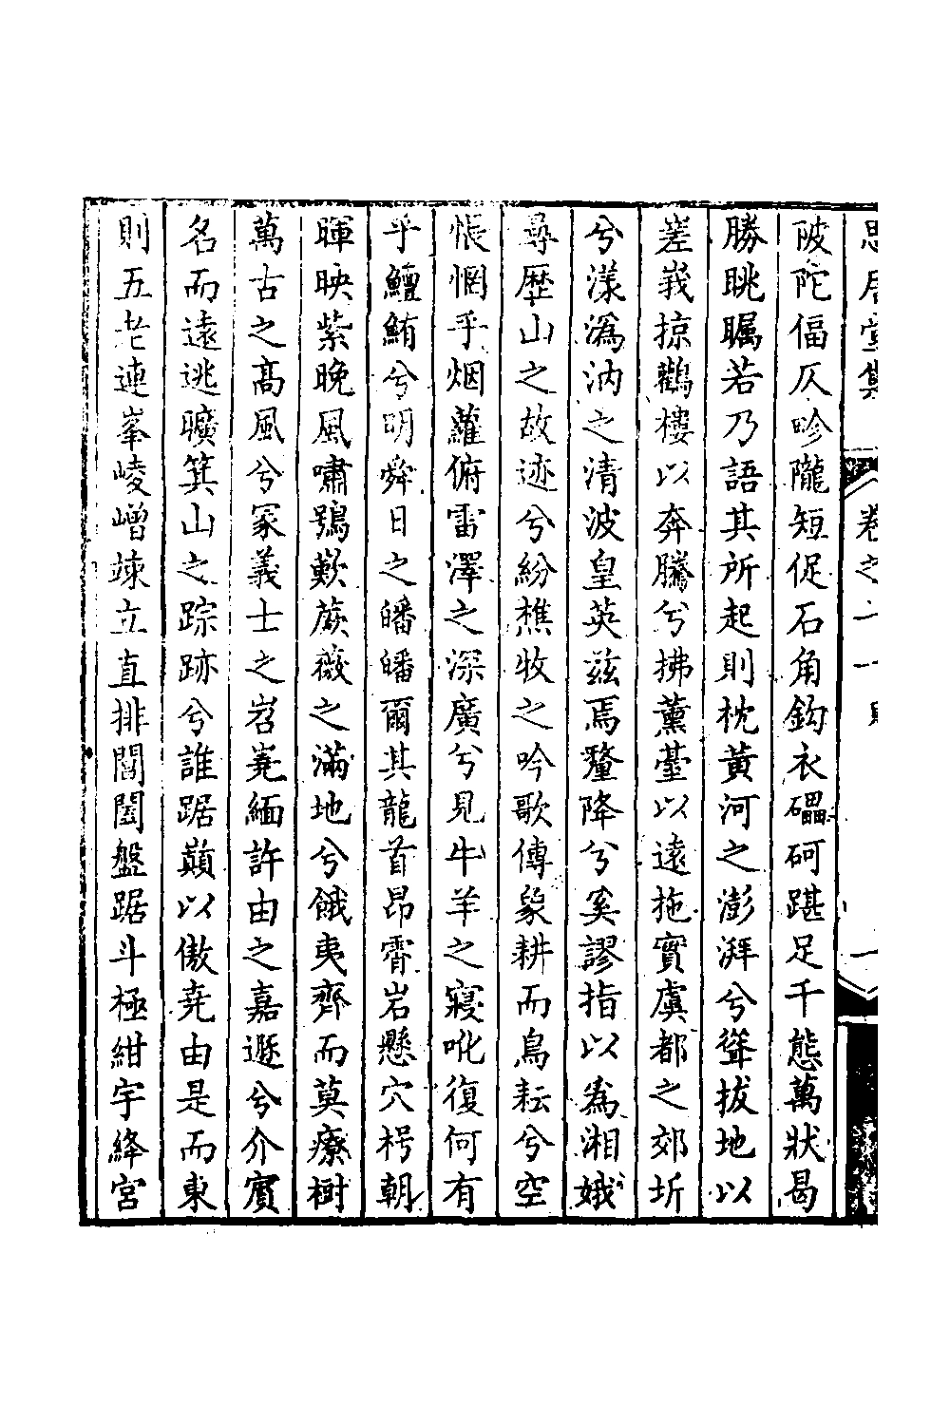 思居堂集 卷之一 一
陂陀偪仄畛隴短促石角鈎衣礧砢踸足千態萬狀曷
勝眺矚若乃語其所起則枕黃河之澎湃兮聳拔地以
嵳峩掠鸛樓以奔騰兮拂薰臺以遠拖實虞都之郊圻
兮漾溈汭之清波皇英兹焉釐降兮奚謬指以為湘娥
尋歷山之故迹兮紛樵牧之吟歌傳象耕而鳥耘兮空
悵惘乎烟蘿俯雷澤之深廣兮見牛羊之寢吪復何有
乎鱣鮪兮明舜日之皤皤爾其龍首昂霄岩懸穴枵朝
暉映紫晚風嘯鴞歎蕨薇之滿地兮餓夷齊而莫療樹
萬古之高風兮冢義士之岧嶤緬許由之嘉遯兮介賓
名而遠逃曠箕山之踪跡兮誰踞巔以傲堯由是而東
則五老連峯崚嶒竦立直排閶闔盤踞斗極紺宇絳宮